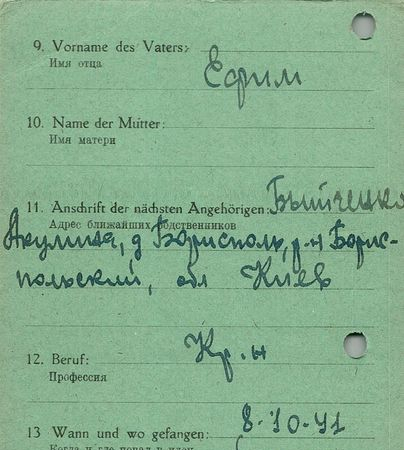 9. Vorname des Vaters:
Имя отца
Ефим
10. Name der Mutter:
Имя матери
11. Anschrift der nächsten Angehörigen:
Адрес ближайших родственников
Акулина, д Борисполь, р-н Борис-
польский, обл Киев
12. Beruf: Кр-н
Профессия
13 Wann und wo gefangen: 8-10-41
Когда и где попал в плен